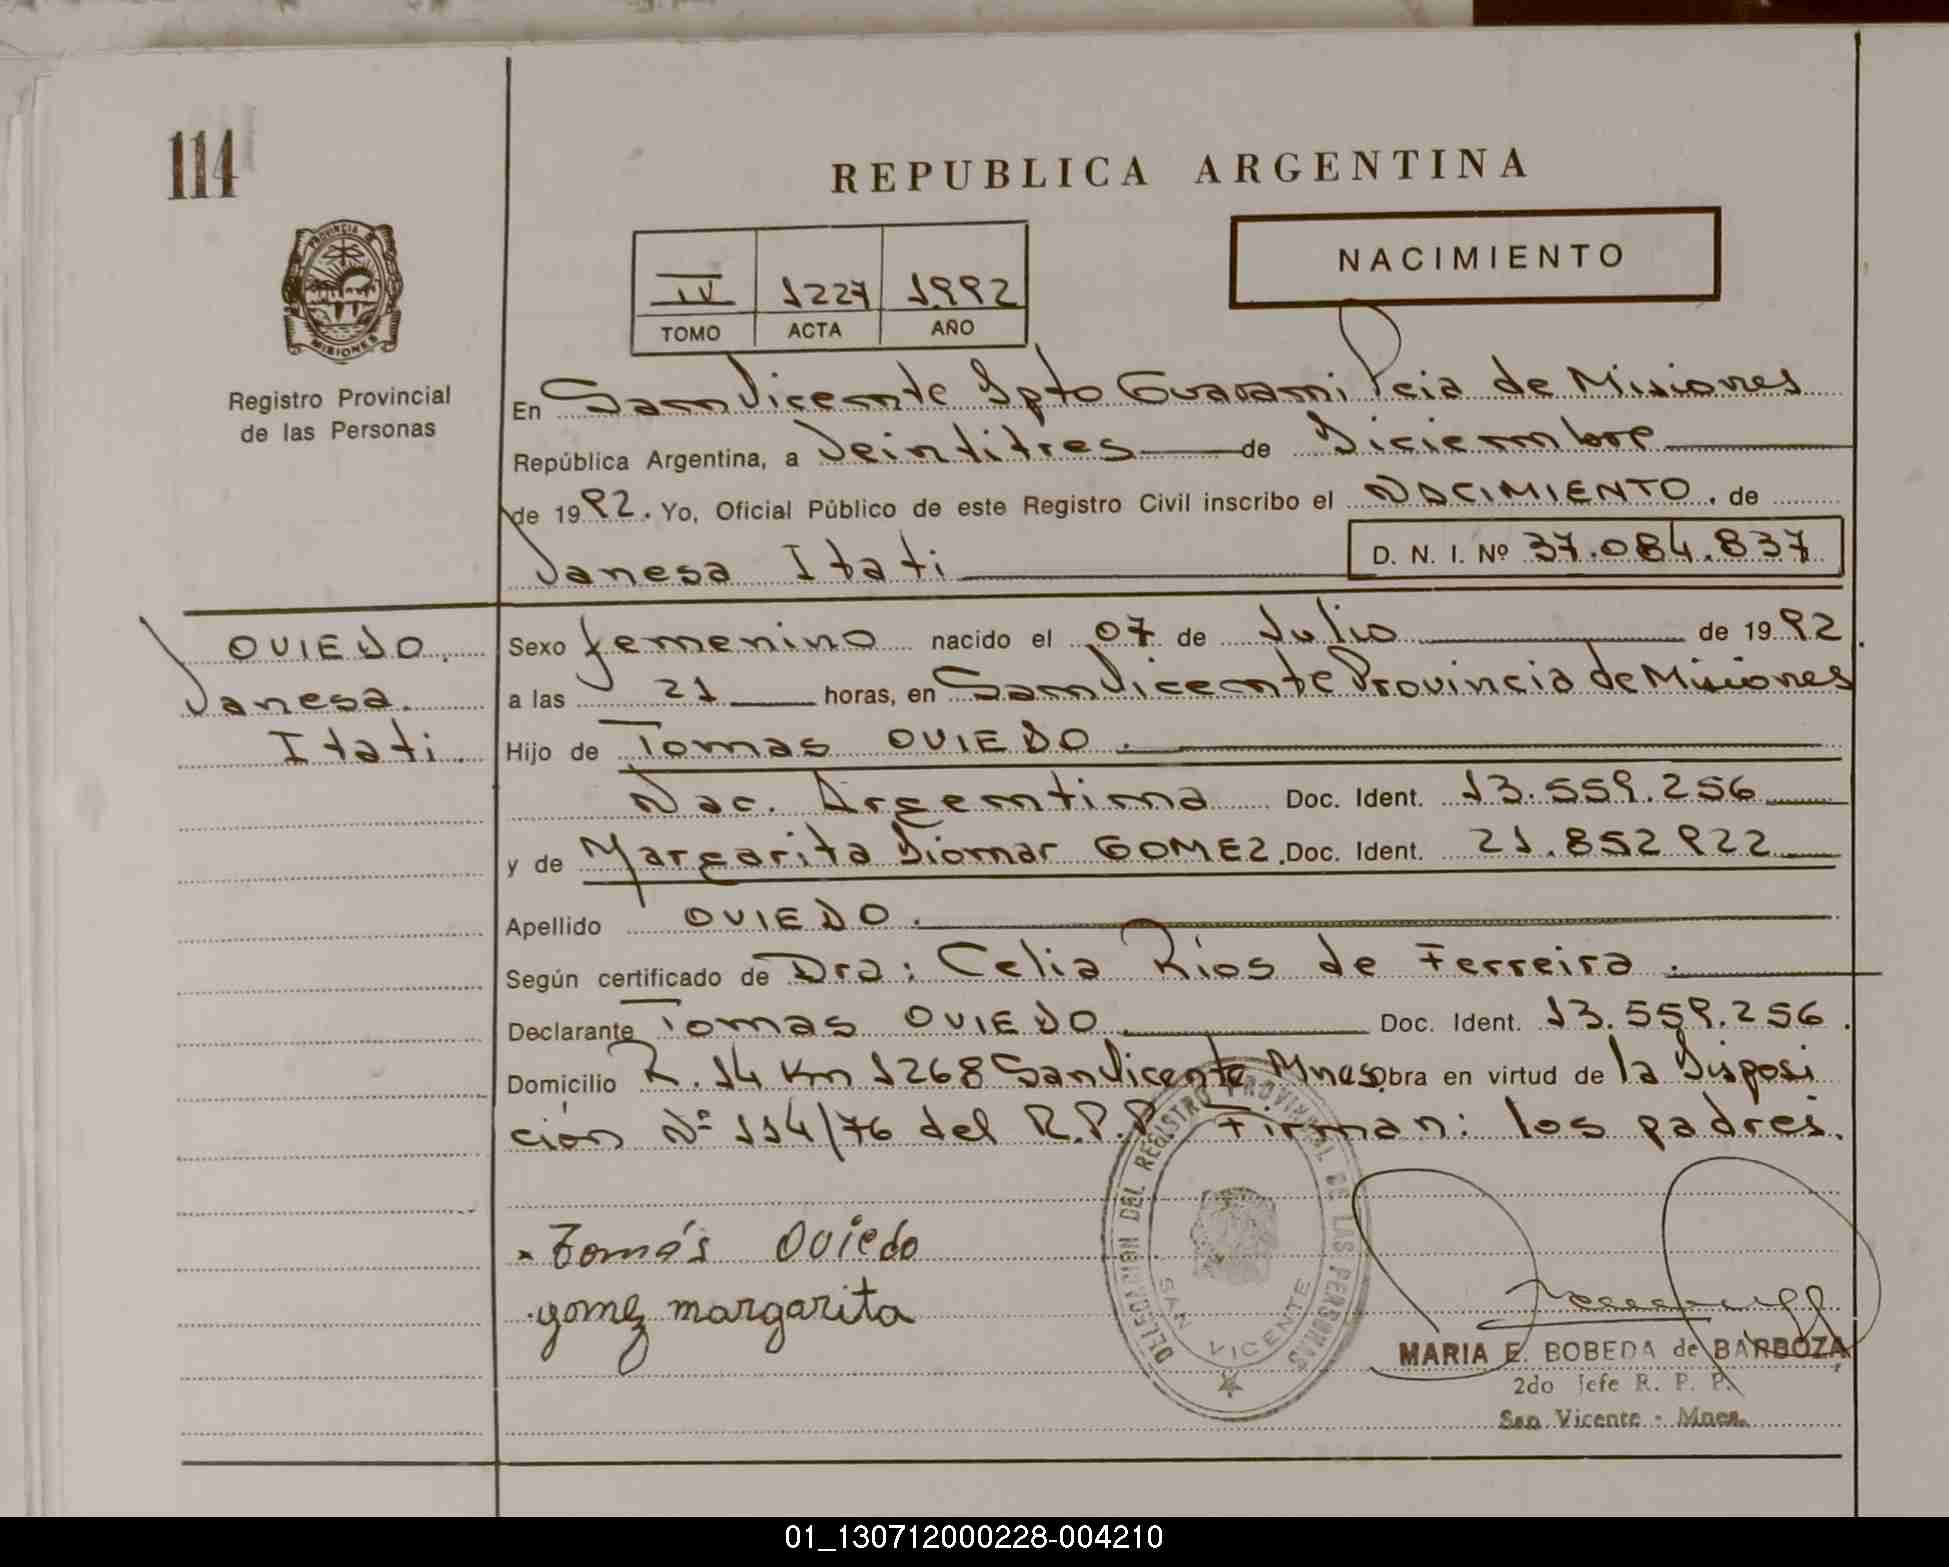 114
REPUBLICA ARGENTINA
PROVINCIA DE
MISIONES
NACIMIENTO
IV 1227 1992
TOMO ACTA AÑO
Registro Provincial
de las Personas
En San Vicente Dpto Guarani Pcia de Misiones
República Argentina, a Veintitres de Diciembre
de 1992. Yo, Oficial Público de este Registro Civil inscribo el NACIMIENTO. de
Vanesa Itati D. N. I. Nº 37.084.837
OVIEDO.
Vanesa.
Itati.
Sexo femenino nacido el 07 de Julio de 1992.
a las 21 horas, en San Vicente Provincia de Misiones
Hijo de Tomas OVIEDO.
Nac. Argentina Doc. Ident. 13.559.256
y de Margarita Diomar GOMEZ. Doc. Ident. 21.852 922
Apellido OVIEDO.
Según certificado de Dra: Celia Ríos de Ferreira.
Declarante Tomas OVIEDO Doc. Ident. 13.559.256.
Domicilio R. 14 Km 1268 San Vicente Mnes Obra en virtud de la Disposi
ción Nº 114/76 del R.P.P. Firman: los padres.
DELEGACION DEL REGISTRO PROVINCIAL DE LAS PERSONAS
SAN VICENTE
Tomás Oviedo
gomez margarita
MARIA E. BOBEDA de BARBOZA
2do Jefe R. P. P.
San Vicente - Mnes.
01_130712000228-004210